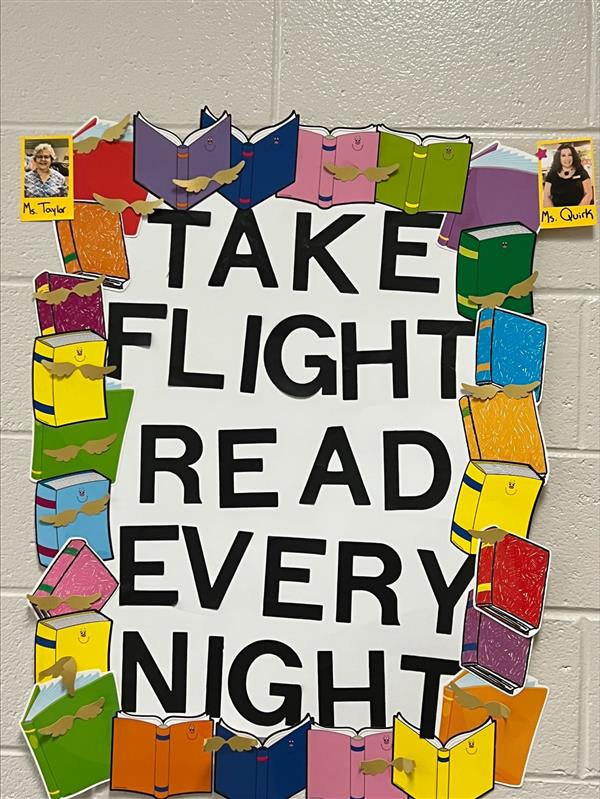 Ms. Taylor
Ms. Quirk
TAKE
FLIGHT
READ
EVERY
NIGHT